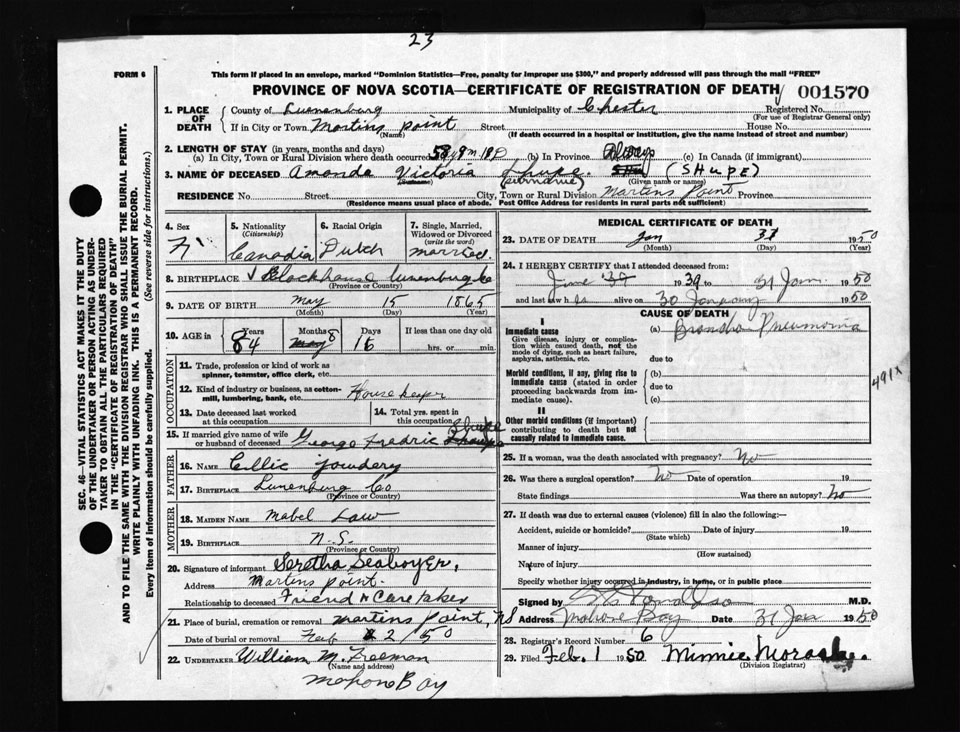 23
FORM 6
This form if placed in an envelope, marked "Dominion Statistics—Free, penalty for improper use $300," and properly addressed will pass through the mail "FREE"
PROVINCE OF NOVA SCOTIA—CERTIFICATE OF REGISTRATION OF DEATH 001570
1. PLACE OF DEATH { County of Lunenburg Municipality of Chester Registered No.
(For use of Registrar General only)
If in City or Town Martins point Street House No.
(Name) (If death occurred in a hospital or institution, give the name instead of street and number)
2. LENGTH OF STAY (in years, months and days)
(a) In City, Town or Rural Division where death occurred (b) In Province Always (c) In Canada (if immigrant)
3. NAME OF DECEASED Amanda Victoria Shupe. (SHUPE)
(Surname) (surname) (Given name or names)
RESIDENCE No. Street City, Town or Rural Division Martins Point Province
(Residence means usual place of abode. Post Office Address for residents in rural parts not sufficient)
4. Sex F
5. Nationality (Citizenship) Canadia
6. Racial Origin Dutch
7. Single, Married, Widowed or Divorced (write the word) married.
8. BIRTHPLACE Blockhouse Lunenburg Co
(Province or Country)
9. DATE OF BIRTH May 15 1865
(Month) (Day) (Year)
10. AGE in { Years 84 Months 8 Days 15 If less than one day old
hrs. or min.
OCCUPATION
11. Trade, profession or kind of work as spinner, teamster, office clerk, etc.
12. Kind of industry or business, as cotton-mill, lumbering, bank, etc. House keeper
13. Date deceased last worked at this occupation
14. Total yrs. spent in this occupation
15. If married give name of wife or husband of deceased George Fredric Shupe
FATHER
16. Name Ellic Jowdery
17. Birthplace Lunenburg Co
(Province or Country)
MOTHER
18. Maiden Name Mabel Law
19. Birthplace N.S.
(Province or Country)
20. Signature of informant Seretha Seaboyer.
Address Martins point.
Relationship to deceased Friend & Care taker
21. Place of burial, cremation or removal Martins Point, NS
Date of burial or removal Feb 2/50
22. UNDERTAKER William M. Freeman
(Name and address)
Mahone Bay
MEDICAL CERTIFICATE OF DEATH
23. DATE OF DEATH Jan 31 1950
(Month) (Day) (Year)
24. I HEREBY CERTIFY that I attended deceased from:
June 1939 to 31 Jan. 1950
and last saw h alive on 30 January 1950
CAUSE OF DEATH
I
Immediate cause
Give disease, injury or complication which caused death, not the mode of dying, such as heart failure, asphyxia, asthenia, etc.
(a) Broncho Pneumonia
due to
Morbid conditions, if any, giving rise to immediate cause (stated in order proceeding backwards from immediate cause).
(b)
due to
(c)
491X
II
Other morbid conditions (if important) contributing to death but not causally related to immediate cause.
25. If a woman, was the death associated with pregnancy? No
26. Was there a surgical operation? No Date of operation 19
State findings Was there an autopsy? No
27. If death was due to external causes (violence) fill in also the following:—
Accident, suicide or homicide? Date of injury 19
(State which)
Manner of injury
(How sustained)
Nature of injury
Specify whether injury occurred in industry, in home, or in public place
Signed by Donaldson M.D.
Address Mahone Bay Date 31 Jan 1950
28. Registrar's Record Number 6
29. Filed Feb. 1 1950 Minnie Morash.
(Division Registrar)
SEC. 46—VITAL STATISTICS ACT MAKES IT THE DUTY
OF THE UNDERTAKER OR PERSON ACTING AS UNDER-
TAKER TO OBTAIN ALL THE PARTICULARS REQUIRED
IN THE "CERTIFICATE OF REGISTRATION OF DEATH"
AND TO FILE THE SAME WITH THE DIVISION REGISTRAR WHO SHALL ISSUE THE BURIAL PERMIT.
WRITE PLAINLY WITH UNFADING INK. THIS IS A PERMANENT RECORD.
Every item of information should be carefully supplied. (See reverse side for instructions.)